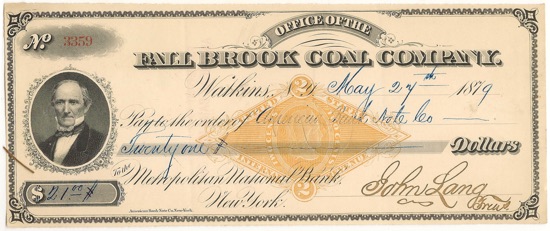 OFFICE OF THE
No 3359
FALL BROOK COAL COMPANY.
Watkins, N.Y. May 27th 1879
Pay to the order of American Bank Note Co
Twenty one # Dollars
To the
Metropolitan National Bank,
New York.
$21.00 #
John Lang
Treas
American Bank Note Co. New York.